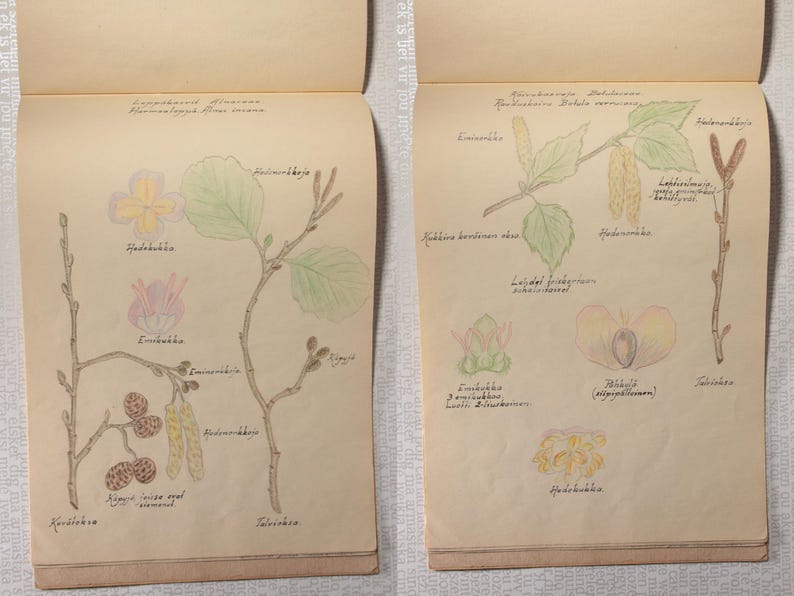 Leppäkasvit Alnaceae
Harmaaleppä. Alnus incana.
Hedenorkkoja
Hedekukka.
Emikukka.
Eminorkkoja.
Käpyjä
Hedenorkkoja
Käpyjä, joissa ovat
siemenet.
Kevätoksa
Talvioksa.
Koivukasveja Betulaceae.
Rauduskoivu Betula verrucosa.
Eminorkko
Hedenorkkoja
Lehtisilmuja,
joista eminorkot
kehittyvät.
Kukkiva keväinen oksa.
Hedenorkko.
Lehdet toiskertaan
sahalaitaiset.
Emikukka
3 emikukkaa.
Luotti 2-liuskainen.
Pähkylä
(siipipalteinen)
Talvioksa.
Hedekukka.